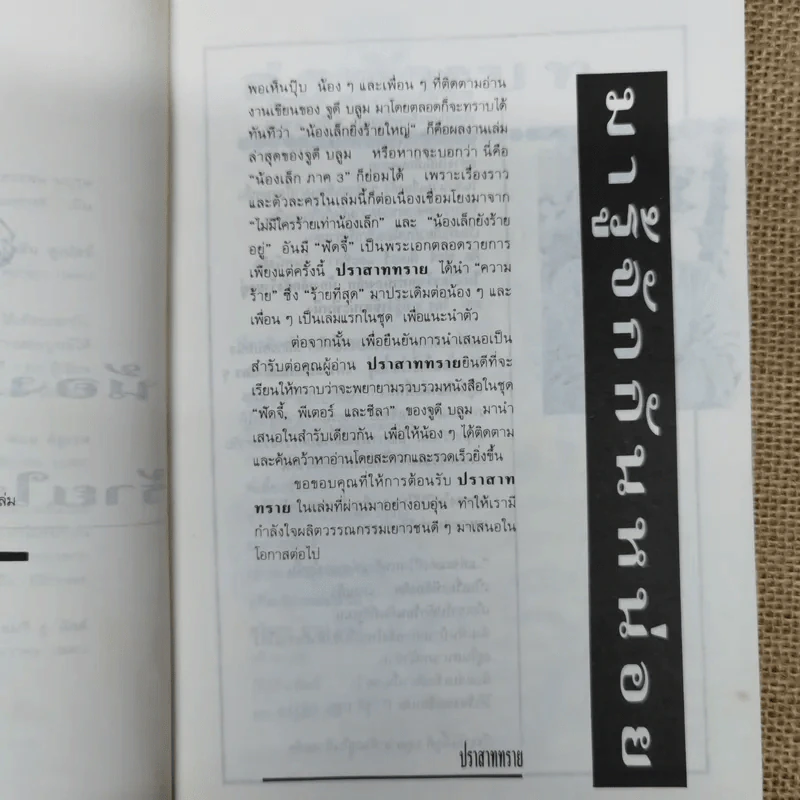 พอเห็นปุ๊บ น้อง ๆ และเพื่อน ๆ ที่ติดตามอ่าน
งานเขียนของ จูดี บลูม มาโดยตลอดก็จะทราบได้
ทันทีว่า "น้องเล็กยิ่งร้ายใหญ่" ก็คือผลงานเล่ม
ล่าสุดของจูดี บลูม หรือหากจะบอกว่า นี่คือ
"น้องเล็ก ภาค 3" ก็ย่อมได้ เพราะเรื่องราว
และตัวละครในเล่มนี้ก็ต่อเนื่องเชื่อมโยงมาจาก
"ไม่มีใครร้ายเท่าน้องเล็ก" และ "น้องเล็กยังร้าย
อยู่" อันมี "ฟัดจี้" เป็นพระเอกตลอดรายการ
เพียงแต่ครั้งนี้ ปราสาททราย ได้นำ "ความ
ร้าย" ซึ่ง "ร้ายที่สุด" มาประเดิมต่อน้อง ๆ และ
เพื่อน ๆ เป็นเล่มแรกในชุด เพื่อแนะนำตัว
ต่อจากนั้น เพื่อยืนยันการนำเสนอเป็น
สำรับต่อคุณผู้อ่าน ปราสาททรายยินดีที่จะ
เรียนให้ทราบว่าจะพยายามรวบรวมหนังสือในชุด
"ฟัดจี้, พีเตอร์ และชีลา" ของจูดี บลูม มานำ
เสนอในสำรับเดียวกัน เพื่อให้น้อง ๆ ได้ติดตาม
และค้นคว้าหาอ่านโดยสะดวกและรวดเร็วยิ่งขึ้น
ขอขอบคุณที่ให้การต้อนรับ ปราสาท
ทราย ในเล่มที่ผ่านมาอย่างอบอุ่น ทำให้เรามี
กำลังใจผลิตวรรณกรรมเยาวชนดี ๆ มาเสนอใน
โอกาสต่อไป
ปราสาททราย
มารู้จักกันหน่อย
ล่ม